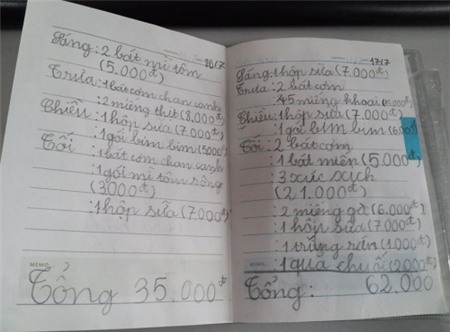 16/7
Sáng: 2 bát mì tôm
(5.000đ)
Trưa: 1 bát cơm chan canh
: 2 miếng thịt (8.000đ)
Chiều: 1 hộp sữa (7.000đ)
: 1 gói bim bim (5000đ)
Tối : 1 bát cơm chan canh
: 1 gói mì tôm sống
(3000đ)
: 1 hộp sữa (7.000đ)
MEMO
Tổng 35.000đ
17/7
Sáng: 1 hộp sữa (7.000đ)
Trưa: 2 bát cơm
: 45 miếng khoai
Chiều: 1 hộp sữa (7.000đ)
: 1 gói bim bim
Tối: 2 bát cơm
: 1 bát miến (5.000đ)
: 3 xúc xích
(21.000đ)
: 2 miếng gà (6.000đ)
: 1 hộp sữa (7.000đ)
: 1 trứng rán (1000đ)
: 1 quả chuối (2000đ)
MEMO
Tổng: 62.000